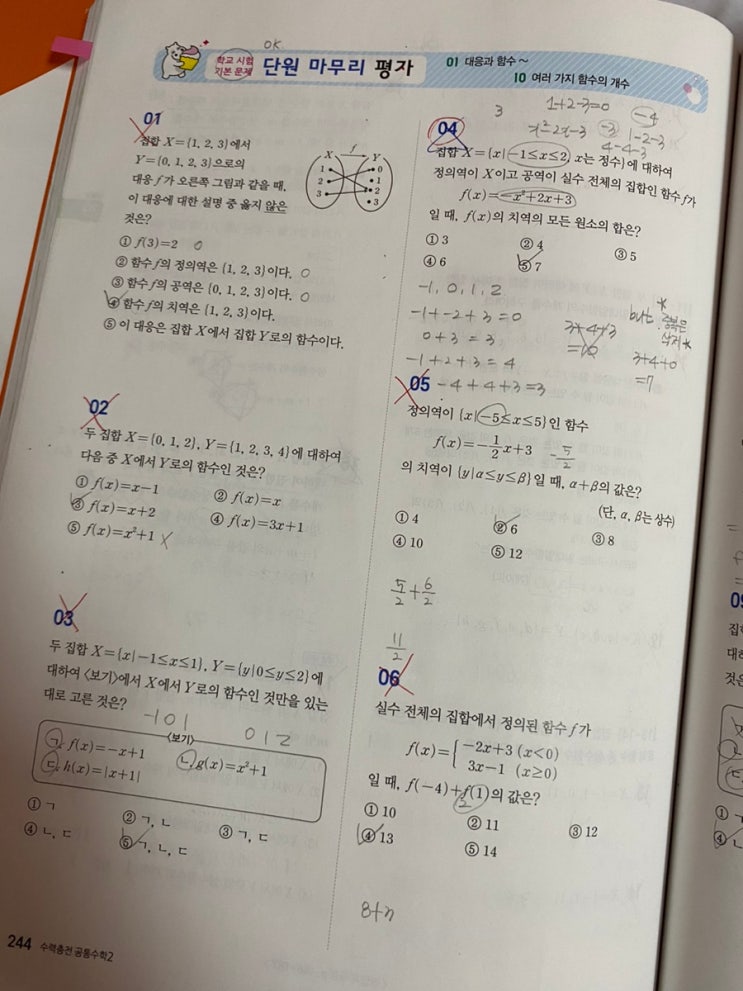 OK
학교 시험
기본 문제
단원 마무리 평가
01 대응과 함수 ~
10 여러 가지 함수의 개수
01
집합 X={1, 2, 3}에서
Y={0, 1, 2, 3}으로의
대응 f가 오른쪽 그림과 같을 때,
이 대응에 대한 설명 중 옳지 않은
것은?
X f Y
1 0
2 1
3 2
3
① f(3)=2 0
② 함수 f의 정의역은 {1, 2, 3}이다. 0
③ 함수 f의 공역은 {0, 1, 2, 3}이다. 0
④ 함수 f의 치역은 {1, 2, 3}이다.
⑤ 이 대응은 집합 X에서 집합 Y로의 함수이다.
02
두 집합 X={0, 1, 2}, Y={1, 2, 3, 4}에 대하여
다음 중 X에서 Y로의 함수인 것은?
① f(x)=x-1
② f(x)=x
③ f(x)=x+2
④ f(x)=3x+1
⑤ f(x)=x²+1 X
03
두 집합 X={x|-1≤x≤1}, Y={y|0≤y≤2}에
대하여 <보기>에서 X에서 Y로의 함수인 것만을 있는
대로 고른 것은?
-1 0 1 0 1 2
<보기>
ㄱ. f(x)=-x+1
ㄴ. g(x)=x²+1
ㄷ. h(x)=|x+1|
① ㄱ
② ㄱ, ㄴ
③ ㄱ, ㄷ
④ ㄴ, ㄷ
⑤ ㄱ, ㄴ, ㄷ
244 수력충전 공통수학2
3 1+2-3=0 -4
x²-2x-3 -3 1-2-3
4-4-3
04
집합 X={x|-1≤x≤2, x는 정수}에 대하여
정의역이 X이고 공역이 실수 전체의 집합인 함수 f가
f(x)=-x²+2x+3
일 때, f(x)의 치역의 모든 원소의 합은?
① 3
② 4
③ 5
④ 6
⑤ 7
-1, 0, 1, 2
-1+-2+3=0
0+3=3
-1+2+3=4
-4+4+3=3
3+4+3
=10
but 중복은
삭제*
3+4+0
=7
05
정의역이 {x|-5≤x≤5}인 함수
f(x)=-1/2x+3 -5/2
의 치역이 {y|α≤y≤β}일 때, α+β의 값은?
(단, α, β는 상수)
① 4
② 6
③ 8
④ 10
⑤ 12
5/2+6/2
11/2
06
실수 전체의 집합에서 정의된 함수 f가
f(x)={ -2x+3 (x<0)
3x-1 (x≥0)
일 때, f(-4)+f(1)의 값은?
2
① 10
② 11
③ 12
④ 13
⑤ 14